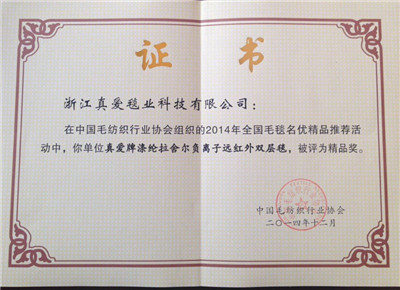 证书
浙江真爱毯业科技有限公司：
在中国毛纺织行业协会组织的2014年全国毛毯名优精品推荐活
动中，你单位真爱牌涤纶拉舍尔负离子远红外双层毯，被评为精品奖。
中国毛纺织行业协会
二〇一四年十二月